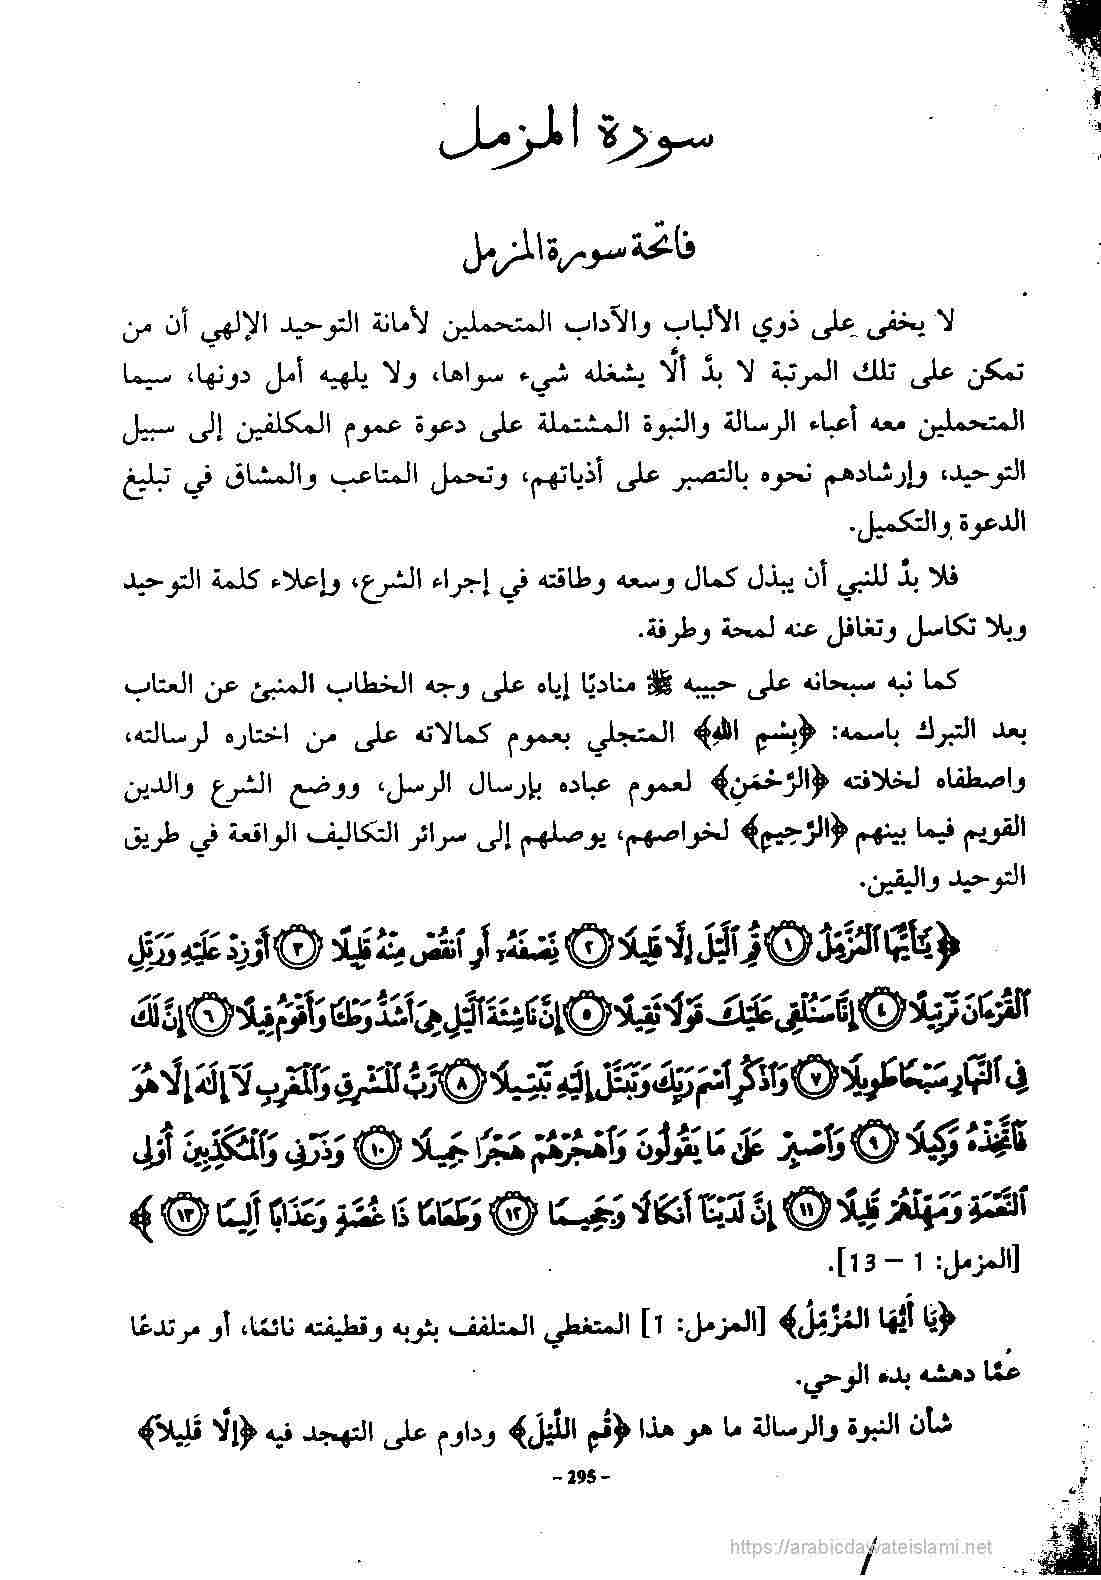 سورة المزمل
فاتحة سورة المزمل
لا يخفى على ذوي الألباب والآداب المتحملين لأمانة التوحيد الإلهي أن من
تمكن على تلك المرتبة لا بدَّ ألَّا يشغله شيء سواها، ولا يلهيه أمل دونها، سيما
المتحملين معه أعباء الرسالة والنبوة المشتملة على دعوة عموم المكلفين إلى سبيل
التوحيد، وإرشادهم نحوه بالتصبر على أذياتهم، وتحمل المتاعب والمشاق في تبليغ
الدعوة والتكميل.
فلا بدَّ للنبي أن يبذل كمال وسعه وطاقته في إجراء الشرع، وإعلاء كلمة التوحيد
وبلا تكاسل وتغافل عنه لمحة وطرفة.
كما نبه سبحانه على حبيبه ﷺ مناديًا إياه على وجه الخطاب المنبئ عن العتاب
بعد التبرك باسمه: ﴿بِسْمِ اللهِ﴾ المتجلي بعموم كمالاته على من اختاره لرسالته،
واصطفاه لخلافته ﴿الرَّحْمَنِ﴾ لعموم عباده بإرسال الرسل، ووضع الشرع والدين
القويم فيما بينهم ﴿الرَّحِيمِ﴾ لخواصهم، يوصلهم إلى سرائر التكاليف الواقعة في طريق
التوحيد واليقين.
﴿يَٰٓأَيُّهَا ٱلْمُزَّمِّلُ ١ قُمِ ٱلَّيْلَ إِلَّا قَلِيلًا ٢ نِصْفَهُۥٓ أَوِ ٱنقُصْ مِنْهُ قَلِيلًا ٣ أَوْ زِدْ عَلَيْهِ وَرَتِّلِ
ٱلْقُرْءَانَ تَرْتِيلًا ٤ إِنَّا سَنُلْقِى عَلَيْكَ قَوْلًا ثَقِيلًا ٥ إِنَّ نَاشِئَةَ ٱلَّيْلِ هِىَ أَشَدُّ وَطْـًٔا وَأَقْوَمُ قِيلًا ٦ إِنَّ لَكَ
فِى ٱلنَّهَارِ سَبْحًا طَوِيلًا ٧ وَٱذْكُرِ ٱسْمَ رَبِّكَ وَتَبَتَّلْ إِلَيْهِ تَبْتِيلًا ٨ رَّبُّ ٱلْمَشْرِقِ وَٱلْمَغْرِبِ لَآ إِلَٰهَ إِلَّا هُوَ
فَٱتَّخِذْهُ وَكِيلًا ٩ وَٱصْبِرْ عَلَىٰ مَا يَقُولُونَ وَٱهْجُرْهُمْ هَجْرًا جَمِيلًا ١٠ وَذَرْنِى وَٱلْمُكَذِّبِينَ أُو۟لِى
ٱلنَّعْمَةِ وَمَهِّلْهُمْ قَلِيلًا ١١ إِنَّ لَدَيْنَآ أَنكَالًا وَجَحِيمًا ١٢ وَطَعَامًا ذَا غُصَّةٍ وَعَذَابًا أَلِيمًا ١٣﴾
[المزمل: 1 – 13].
﴿يَا أَيُّهَا المُزَّمِّلُ﴾ [المزمل: 1] المتغطي المتلفف بثوبه وقطيفته نائمًا، أو مرتدعًا
عمَّا دهشه بدء الوحي.
شأن النبوة والرسالة ما هو هذا ﴿قُمِ اللَّيْلَ﴾ وداوم على التهجد فيه ﴿إِلَّا قَلِيلاً﴾
- 295 -
https://arabicdawateislami.net